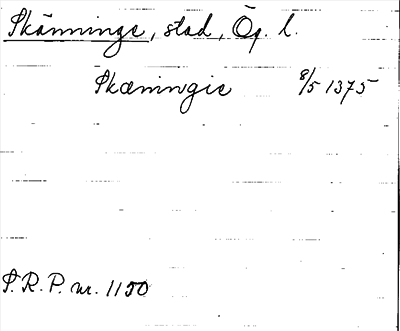 Skännings, stad, Ög. l.
Skæningis 8/5 1375
S.R.P. nr. 1150